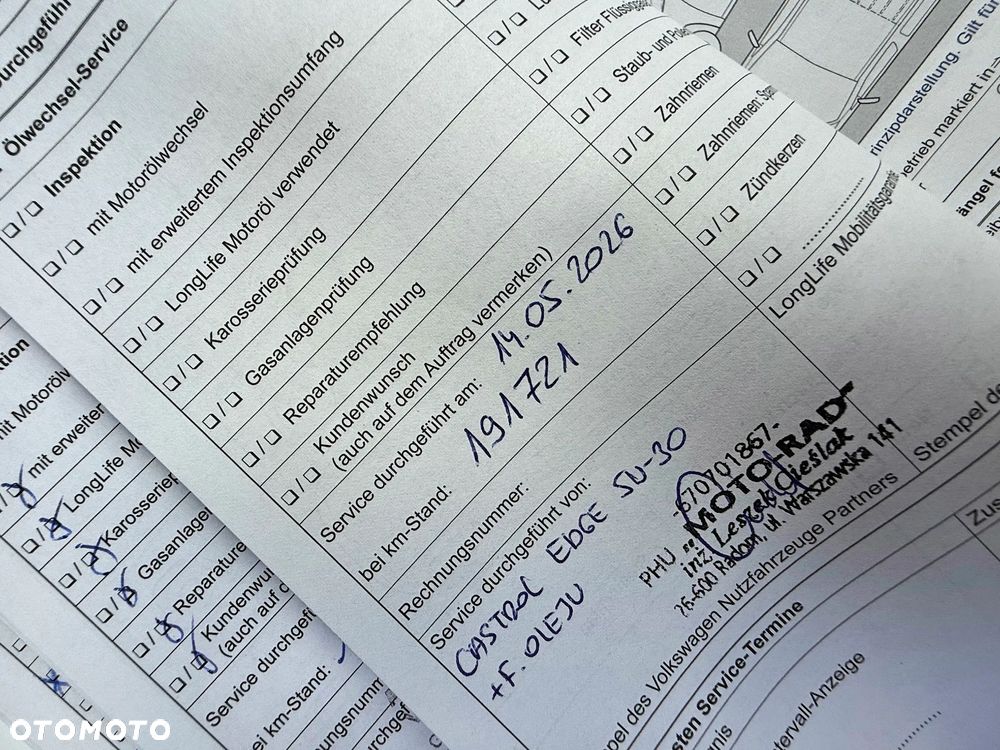 Ölwechsel-Service
Inspektion
mit Motorölwechsel
mit erweitertem Inspektionsumfang
LongLife Motoröl verwendet
Karosserieprüfung
Gasanlagenprüfung
Reparaturempfehlung
Kundenwunsch
(auch auf dem Auftrag vermerken)
Service durchgeführt am: 14.05.2026
bei km-Stand: 191721
Rechnungsnummer:
Service durchgeführt von:
CASTROL EDGE 5W-30
+F. OLEJU
-670701867-
PHU "MOTO-RAD"
inż. Leszek Cieślak
26-600 Radom, ul. Warszawska 141
Stempel des
pel des Volkswagen Nutzfahrzeuge Partners
sten Service-Termine
tervall-Anzeige
Filter
Staub- und
Zahnriemen
Zahnriemen:
Zündkerzen
LongLife Mobilitätsgarantie
rinzipdarstellung. Gilt für
etrieb markiert in
mit Motorölw
mit erweiter
LongLife Mo
Karosseriep
Gasanlagen
Reparature
Kundenwu
(auch auf d
Service durchgefü
bei km-Stand:
OTOMOTO